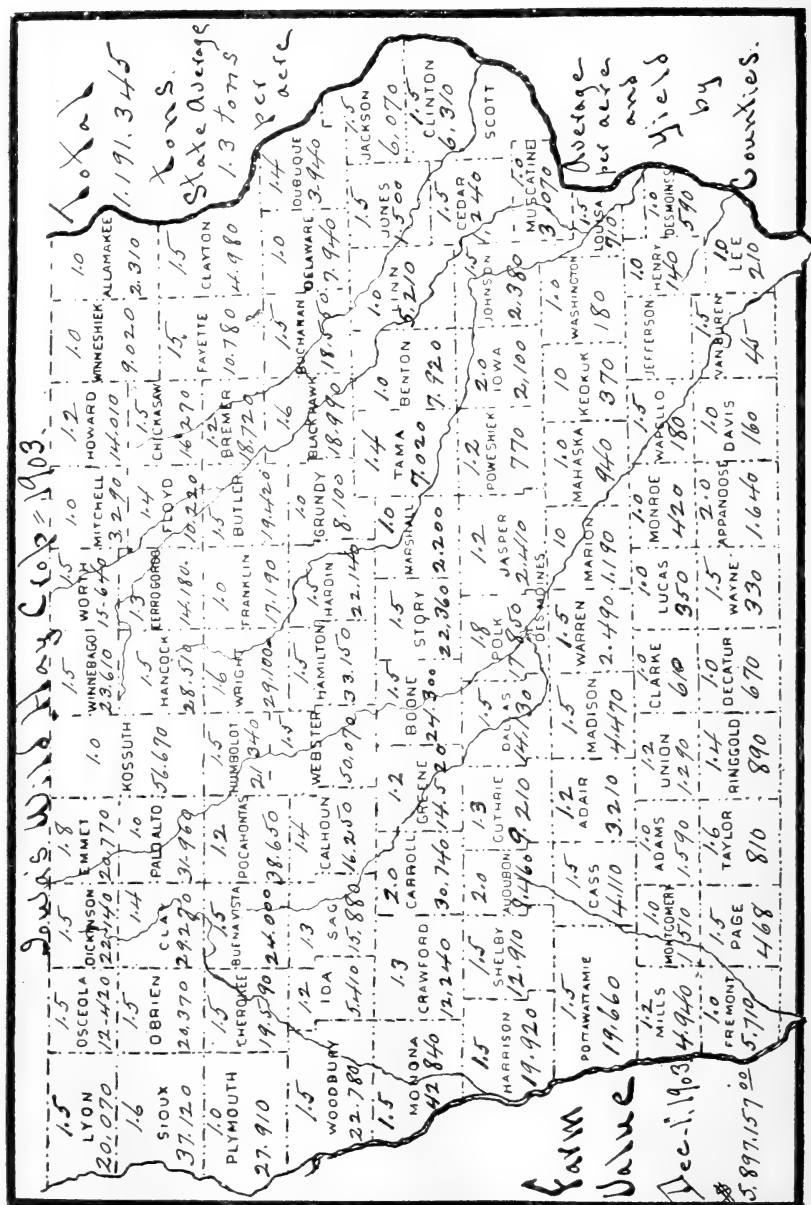 Iowa's Wild Hay Crop = 1903.
Total
1.191.345
tons.
State Average
1.3 tons
per
acre
1.5
LYON
20,070
1.5
OSCEOLA
12.420
1.5
DICKINSON
22.140
1.8
EMMET
20.770
1.0
KOSSUTH
56.670
1.5
WINNEBAGO
23.610
1.5
WORTH
15.640
1.0
MITCHELL
3.290
1.2
HOWARD
14.010
1.0
WINNESHIEK
9.020
1.0
ALLAMAKEE
2.310
1.6
SIOUX
37.120
1.5
OBRIEN
20.370
1.4
CLAY
1.0
PALO ALTO
31.960
1.5
HANCOCK
28.510
1.3
CERRO GORDO
14.180.
1.4
FLOYD
10.220
1.5
CHICKASAW
16.270
1.5
FAYETTE
10.780
1.5
CLAYTON
4.980
1.0
PLYMOUTH
27.910
1.5
CHEROKEE
19.590
1.5
BUENA VISTA
24.000
1.2
POCAHONTAS
38.650
1.5
HUMBOLDT
21.340
1.6
WRIGHT
29.100
1.0
FRANKLIN
17.190
1.5
BUTLER
19.420
1.2
BREMER
8.720
1.5
WOODBURY
22.780
1.2
IDA
5.410
1.3
SAC
15.880
1.4
CALHOUN
16.250
1.5
WEBSTER
50.070
1.5
HAMILTON
33.150
1.5
HARDIN
22.140
1.0
GRUNDY
8.100
1.6
BLACK HAWK
18.990
1.5
BUCHANAN
18.500
1.0
DELAWARE
7.940
1.4
DUBUQUE
3.940
1.5
MONONA
42.840
1.3
CRAWFORD
12.240
2.0
CARROLL
30.740
1.2
GREENE
14.520
1.5
BOONE
24.300
1.5
STORY
22.360
1.0
MARSHALL
2.200
1.4
TAMA
7.020
1.0
BENTON
7.920
1.0
LINN
5.210
JONES
1.500
1.5
JACKSON
6,070
1.5
CLINTON
6,310
1.5
HARRISON
19.920
1.5
SHELBY
12.910
2.0
AUDUBON
8.460
1.3
GUTHRIE
9.210
1.5
DALLAS
14.130
1.8
POLK
17.850
DES MOINES
1.2
JASPER
2.410
1.2
POWESHIEK
770
2.0
IOWA
2,100
1.5
JOHNSON
2.380
1.5
CEDAR
1,240
SCOTT
1.0
MUSCATINE
3,070
1.5
POTTAWATTAMIE
19.660
1.5
CASS
4.110
1.2
ADAIR
3.210
1.5
MADISON
4.470
1.5
WARREN
2.490
10
MARION
1.190
1.0
MAHASKA
940
10
KEOKUK
370
1.0
WASHINGTON
180
1.5
LOUISA
710
1.2
MILLS
4.940
1.0
MONTGOMERY
1.510
1.0
ADAMS
1.590
1.2
UNION
1.290
1.0
CLARKE
610
1.0
LUCAS
350
1.0
MONROE
420
1.5
WAPELLO
180
JEFFERSON
1.0
HENRY
140
1.0
DESMOINES
590
1.0
FREMONT
5.710
1.5
PAGE
468
1.6
TAYLOR
810
1.4
RINGGOLD
890
1.0
DECATUR
670
1.5
WAYNE
330
2.0
APPANOOSE
1.640
1.0
DAVIS
160
1.5
VAN BUREN
45
1.0
LEE
210
Farm
Value
Dec-1, 1903
$5.897.157 00
Average
per acre
and
Yield
by
Counties.